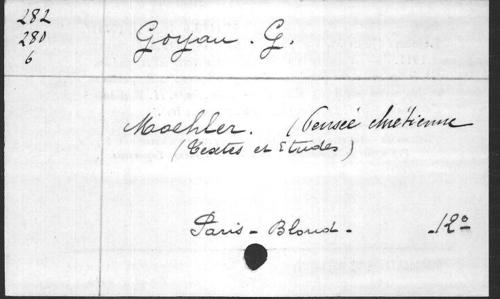 282
280
6
Goyau. G.
Moehler. (Pensée chrétienne
(Textes et Etudes)
Paris - Bloud - -12°